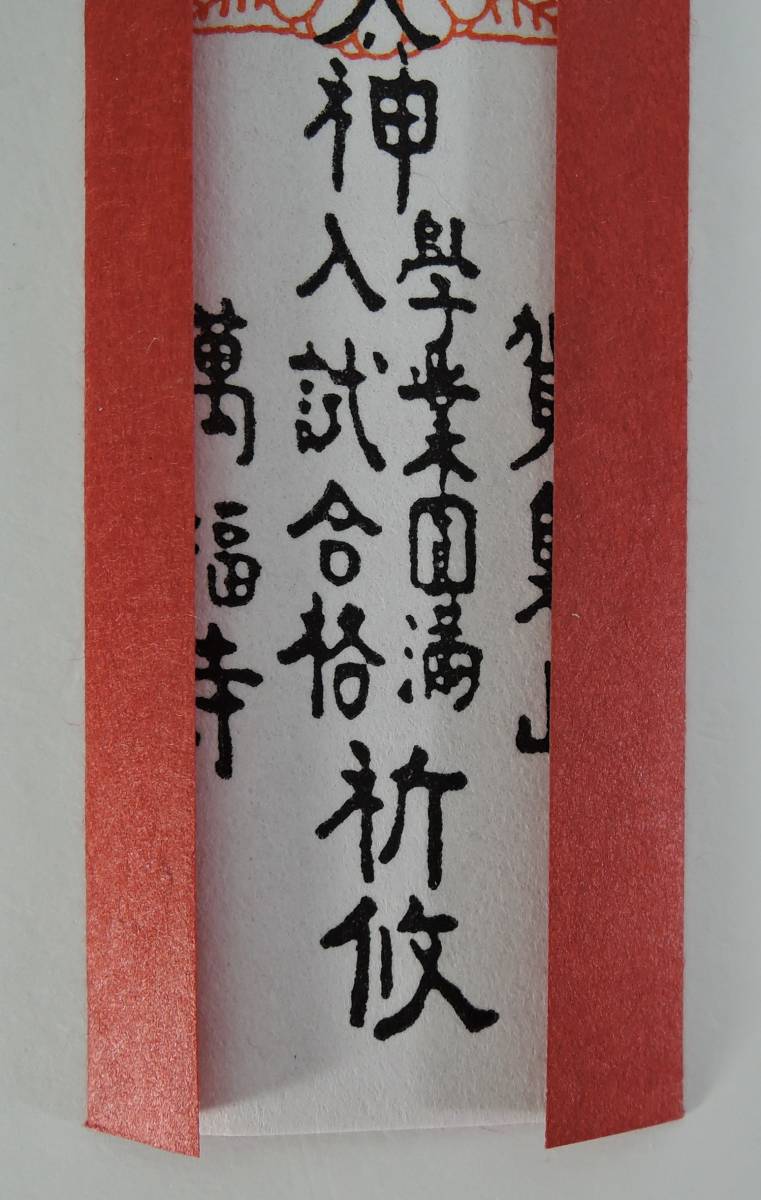 賀集山
太神
學業圓滿
入試合格
祈攸
萬福寺